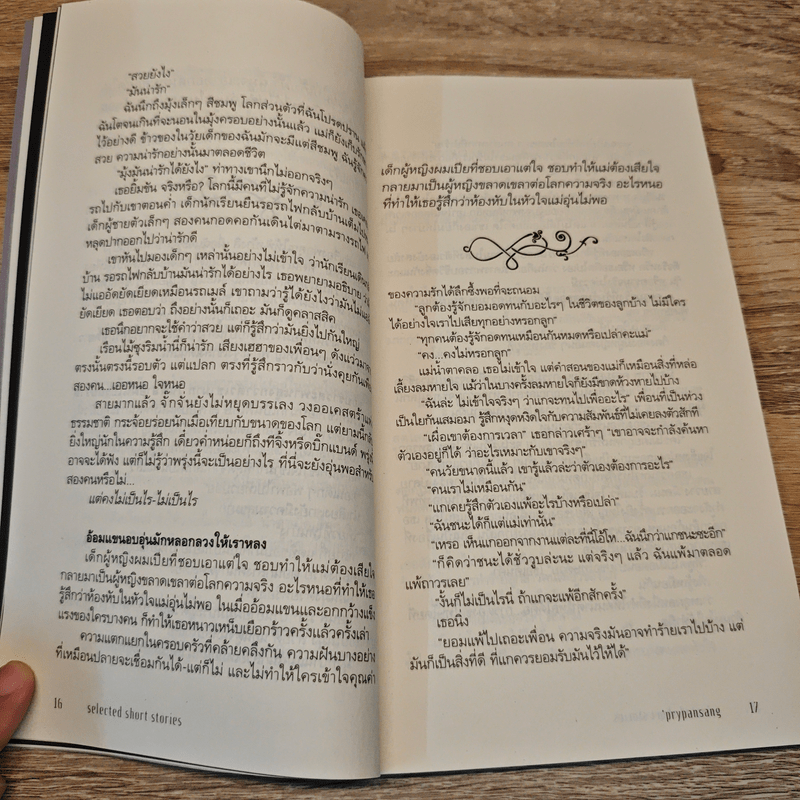 "สวยยังไง"
"มันน่ารัก"
ฉันนึกถึงมุ้งเล็กๆ สีชมพู โลกส่วนตัวที่ฉันโปรดปราน
ฉันโตจนเกินที่จะนอนในมุ้งครอบอย่างนั้นแล้ว แม่ก็ยังเก็บ
ไว้อย่างดี ข้าวของในวัยเด็กของฉันมักจะมีแต่สีชมพู ฉันรู้จัก
สวย ความน่ารักอย่างนั้นมาตลอดชีวิต
"มุ้งมันน่ารักได้ยังไง" ท่าทางเขานึกไม่ออกจริงๆ
เธอยิ้มขัน จริงหรือ? โลกนี้มีคนที่ไม่รู้จักความน่ารัก เธอ
รถไปกับเขาตอนค่ำ เด็กนักเรียนยืนรอรถไฟกลับบ้านเต็มไป
เด็กผู้ชายตัวเล็กๆ สองคนกอดคอกันเดินไต่มาตามรางรถไฟ
หลุดปากออกไปว่าน่ารักดี
เขาหันไปมองเด็กๆ เหล่านั้นอย่างไม่เข้าใจ ว่านักเรียนเดิน
บ้าน รอรถไฟกลับบ้านมันน่ารักได้อย่างไร เธอพยายามอธิบาย
ไม่แออัดยัดเยียดเหมือนรถเมล์ เขาถามว่ารู้ได้ยังไงว่ามันไม่
ยัดเยียด เธอตอบว่า ถึงอย่างนั้นก็เถอะ มันก็ดูคลาสสิค
เธอนึกอยากจะใช้คำว่าสวย แต่ก็รู้สึกว่ามันยิ่งไปกันใหญ่
เรือนไม้ซุงริมน้ำนี่ก็น่ารัก เสียงเฮฮาของเพื่อนๆ ดังแว่วมา
ตรงนั้นตรงนี้รอบตัว แต่แปลก ตรงที่รู้สึกราวกับว่านั่งคุยกันเพียง
สองคน...เออหนอ ใจหนอ
สายมากแล้ว จั๊กจั่นยังไม่หยุดบรรเลง วงออเคสตร้าแห่ง
ธรรมชาติ กระจ้อยร่อยนักเมื่อเทียบกับขนาดของโลก แต่ยามนี้
ยิ่งใหญ่นักในความรู้สึก เดี๋ยวค่ำหน่อยก็ถึงทีจิ้งหรีดบิ๊กแบนด์ พรุ่งนี้
อาจจะได้ฟัง แต่ก็ไม่รู้ว่าพรุ่งนี้จะเป็นอย่างไร ที่นี่จะยังอุ่นพอสำหรับ
สองคนหรือไม่...
แต่คงไม่เป็นไร-ไม่เป็นไร
อ้อมแขนอบอุ่นมักหลอกลวงให้เราหลง
เด็กผู้หญิงผมเปียที่ชอบเอาแต่ใจ ชอบทำให้แม่ต้องเสียใจ
กลายมาเป็นผู้หญิงขลาดเขลาต่อโลกความจริง อะไรหนอที่ทำให้เธอ
รู้สึกว่าห้องหับในหัวใจแม่อุ่นไม่พอ ในเมื่ออ้อมแขนและอกกว้างแข็ง
แรงของใครบางคน ก็ทำให้เธอหนาวเหน็บเยือกร้าวครั้งแล้วครั้งเล่า
ความแตกแยกในครอบครัวที่คล้ายคลึงกัน ความฝันบางอย่าง
ที่เหมือนปลายจะเชื่อมกันได้-แต่ก็ไม่ และไม่ทำให้ใครเข้าใจคุณค่า
16 selected short stories
เด็กผู้หญิงผมเปียที่ชอบเอาแต่ใจ ชอบทำให้แม่ต้องเสียใจ
กลายมาเป็นผู้หญิงขลาดเขลาต่อโลกความจริง อะไรหนอ
ที่ทำให้เธอรู้สึกว่าห้องหับในหัวใจแม่อุ่นไม่พอ
ของความรักได้ลึกซึ้งพอที่จะถนอม
"ลูกต้องรู้จักยอมอดทนกับอะไรๆ ในชีวิตของลูกบ้าง ไม่มีใคร
ได้อย่างใจเราไปเสียทุกอย่างหรอกลูก"
"ทุกคนต้องรู้จักอดทนเหมือนกันหมดหรือเปล่าคะแม่"
"คง...คงไม่หรอกลูก"
แม่น้ำตาคลอ เธอไม่เข้าใจ แต่คำสอนของแม่ก็เหมือนสิ่งที่หล่อ
เลี้ยงลมหายใจ แม้ว่าในบางครั้งลมหายใจก็ยังมีขาดห้วงหายไปบ้าง
"ฉันล่ะ ไม่เข้าใจจริงๆ ว่าแกจะทนไปเพื่ออะไร" เพื่อนที่เป็นห่วง
เป็นใยกันเสมอมา รู้สึกหงุดหงิดใจกับความสัมพันธ์ที่ไม่เคยลงตัวสักที
"เผื่อเขาต้องการเวลา" เธอกล่าวเศร้าๆ "เขาอาจจะกำลังค้นหา
ตัวเองอยู่ก็ได้ ว่าอะไรเหมาะกับเขาจริงๆ"
"คนวัยขนาดนี้แล้ว เขารู้แล้วล่ะว่าตัวเองต้องการอะไร"
"คนเราไม่เหมือนกัน"
"แกเคยรู้สึกตัวเองแพ้อะไรบ้างหรือเปล่า"
"ฉันชนะได้ก็แต่แม่เท่านั้น"
"เหรอ เห็นแกออกจากงานแต่ละที่นี่โอ้โห...ฉันนึกว่าแกชนะซะอีก"
"ก็คิดว่าชนะได้ชั่ววูบล่ะนะ แต่จริงๆ แล้ว ฉันแพ้มาตลอด
แพ้ถาวรเลย"
"งั้นก็ไม่เป็นไรนี่ ถ้าแกจะแพ้อีกสักครั้ง"
เธอนิ่ง
"ยอมแพ้ไปเถอะเพื่อน ความจริงมันอาจทำร้ายเราไปบ้าง แต่
มันก็เป็นสิ่งที่ดี ที่แกควรยอมรับมันไว้ให้ได้"
'prypansang 17